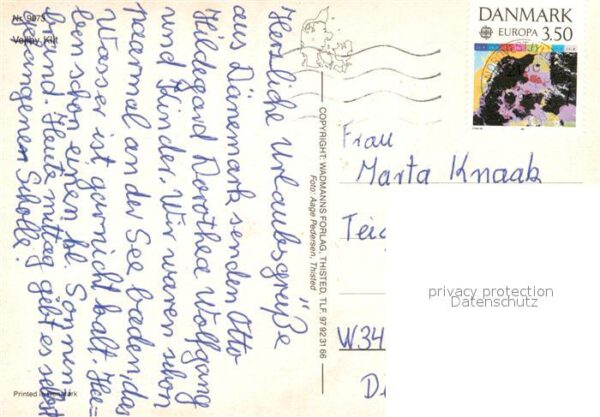 Nr. 9073
Vejlby Klit
Herzliche Urlaubsgrüße
aus Dänemark senden Otto
Hildegard Dorothea Wolfgang
und Kinder. Wir waren schon
paarmal an der See baden, das
Wasser ist garnicht kalt. Hee=
ben schon einen bl. Sonnen
brand. Heute mittag gibt es selbst
gefangenen Scholle.
Printed in Denmark
COPYRIGHT: WADMANNS FORLAG, THISTED, TLF. 97923166
Foto: Aage Pedersen, Thisted
DANMARK
EUROPA 3.50
Frau
Marta Knaak
Teic
W34
D
privacy protection
Datenschutz